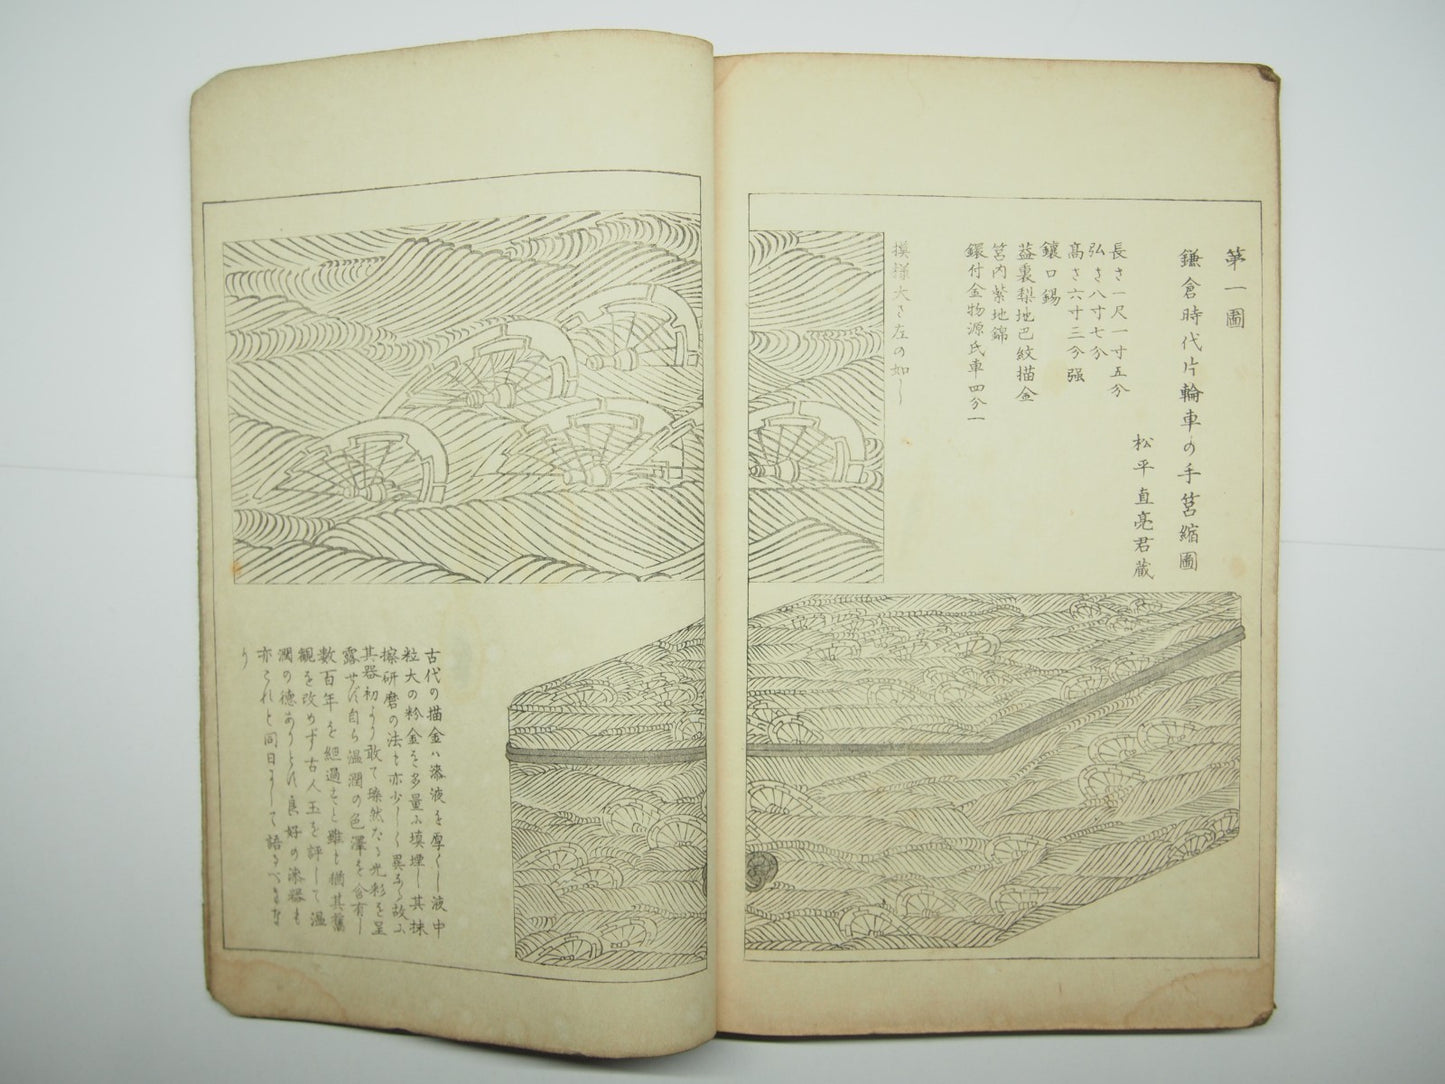 第一圖
鎌倉時代片輪車の手筥縮圖
松平直亮君藏
長さ一尺一寸五分
弘さ八寸七分
高さ六寸三分强
鑲口錫
葢裏梨地巴紋描金
筥內紫地錦
鐶付金物源氏車四分一
摸樣大さ左の如し
古代の描金ハ漆液を厚くし液中
粒大の粉金を多量ふ塡埋し其抹
擦硏磨の法も亦少しく異なる故ふ
其器初より敢て璨然たる光彩を呈
露せず自ら溫潤の色澤を含有し
數百年を經過すと雖も猶其舊
観を改めず古人玉を評して溫
潤の德ありと此良好の漆器も
亦これと同日にして語るべきな
り